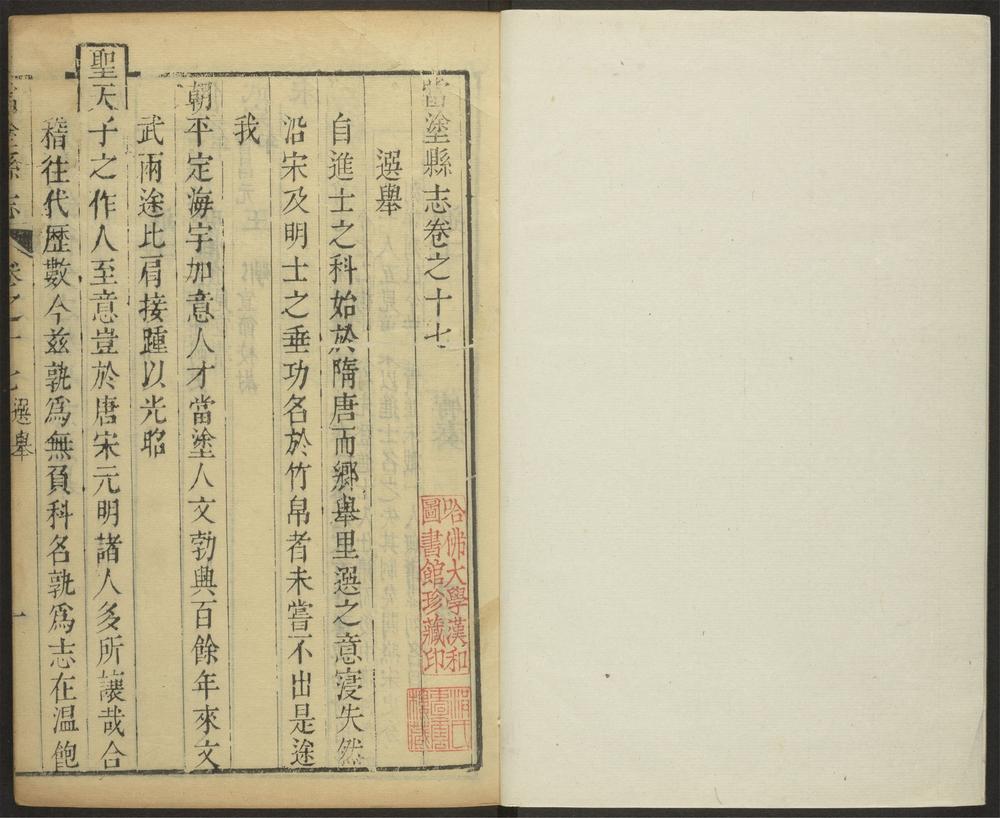 當塗縣志卷之十七
選舉
自進士之科始於隋唐而鄉舉里選之意寖失然
沿宋及明士之垂功名於竹帛者未嘗不出是途
我
朝平定海宇加意人才當塗人文勃興百餘年來文
武兩途比肩接踵以光昭
聖天子之作人至意豈於唐宋元明諸人多所讓哉合
稽往代歷數今茲孰爲無負科名孰爲志在溫飽
當塗縣志
卷之十七選舉
一
哈佛大學漢和
圖書館珍藏印